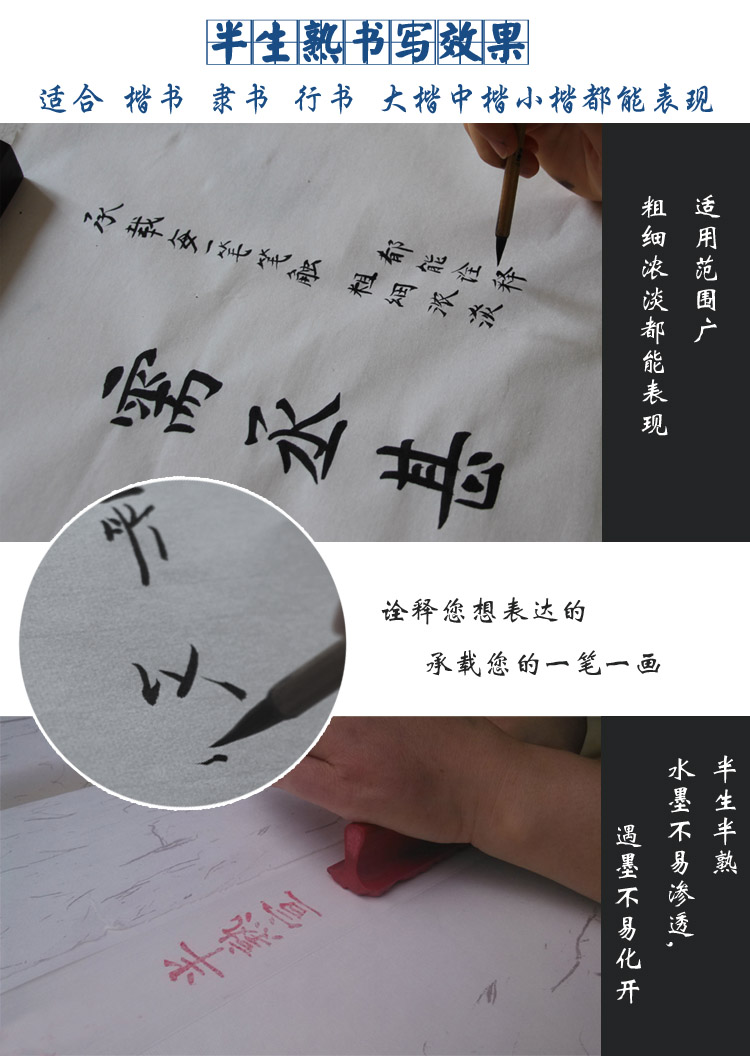 半生熟书写效果
适合 楷书 隶书 行书 大楷中楷小楷都能表现
承载每一笔笔触
都能诠释
粗细浓淡
适用范围广
粗细浓淡都能表现
诠释您想表达的
承载您的一笔一画
半生半熟
水墨不易渗透,
遇墨不易化开